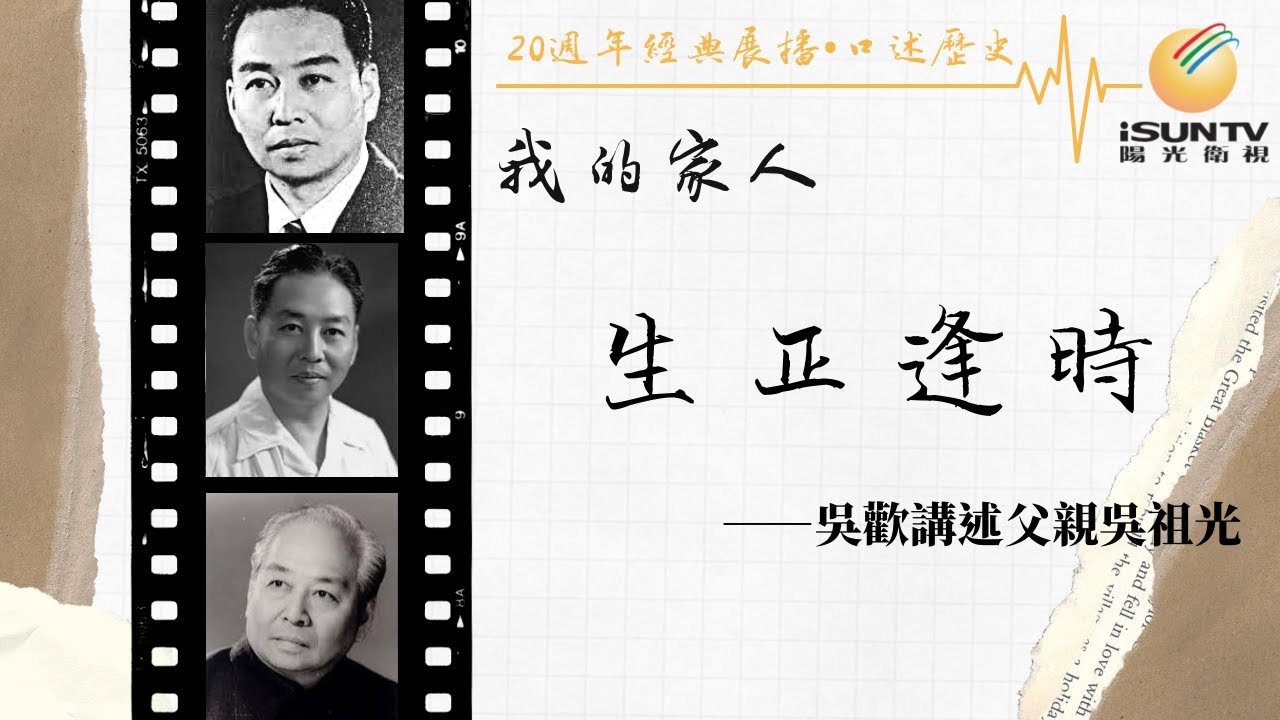 20週年經典展播•口述歷史
iSUNTV
陽光衛視
我的家人
生正逢時
——吳歡講述父親吳祖光
TX 5063
10
9A
9
8A
the Great
and fell in love with
the village
holida